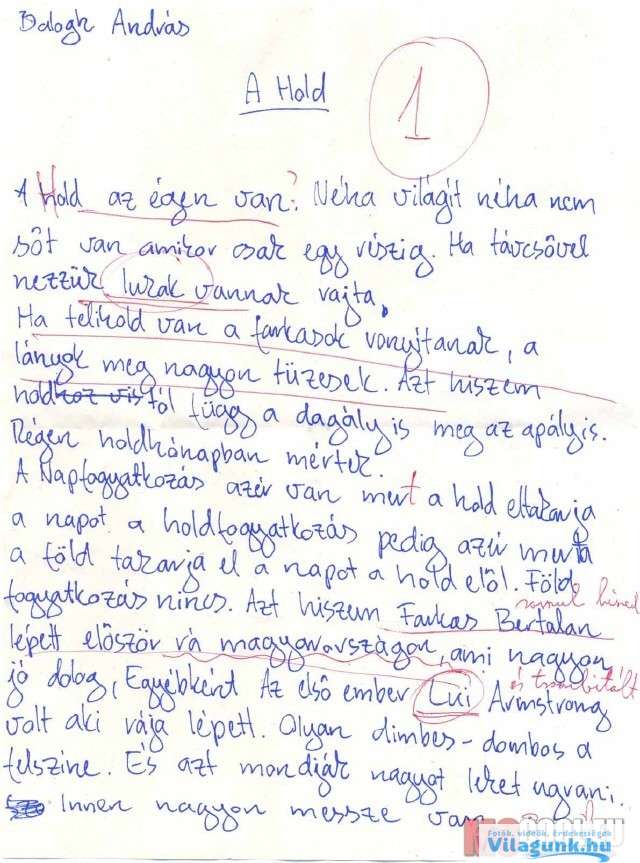 Balogh András
A Hold
1
A Hold az égen van? Néha világit néha nem
sőt van amikor csak egy részig. Ha távcsővel
nezzük lukak vannak rajta.
Ha telihold van a farkasok vonyitanak, a
lányok meg nagyon tüzesek. Azt hiszem
holdhoz vis től függ a dagály is meg az apály is.
Régen holdhónapban mértek.
A Napfogyatkozás azér van mert a hold eltakarja
a napot a holdfogyatkozás pedig azér mert a
a föld takarja el a napot a hold elől. Föld
rosszul hined
fogyatkozás nincs. Azt hiszem Farkas Bertalan
lépett először rá magyarországon, ami nagyon
és trombitált
jó dolog, Egyébként Az első ember Lui Armstrong
volt aki rája lépett. Olyan dimbes-dombos a
felszine. És azt mondják nagyot lehet ugrani.
Innen nagyon messze van
Fotók, videók, érdekességek
Vilagunk.hu